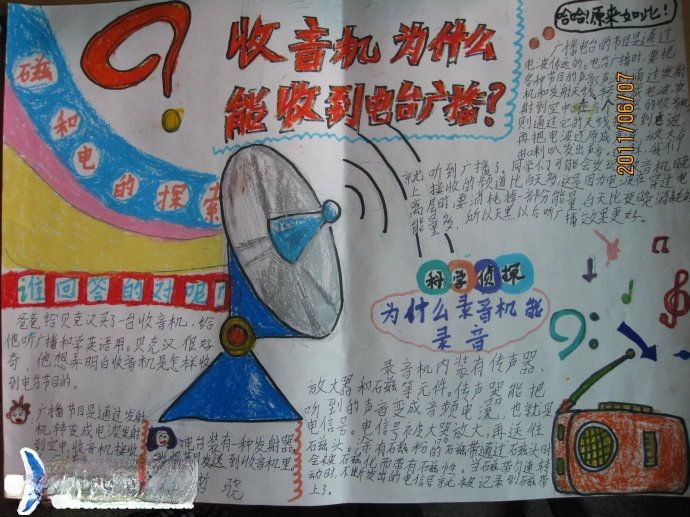 收音机为什么
能收到电台广播?
磁和电的探索
谁回答的对呢?
爸爸给贝克汉买了一台收音机,给
他听广播和学英语用。贝克汉很好
奇,他想弄明白收音机是怎样收
到电台节目的。
广播节目是通过发射
机转变成电波发射
到空中,收音机接收
电台装有一种发射器
哈哈!原来如此!
广播电台的节目是通过
电波传送的。电台广播时,要把
各种节目的声音
机和发射天线
射到空中
则通过它的天线
再把电波还原成
由喇叭发出声音
就听到广播了。同学们可能会发现
上接收的频道比白天多,这是因为电波在穿过电
离层时要消耗掉一部分能量,白天比夜晚消耗的
能量多,所以天黑以后听广播效果更好。
科学侦探
为什么录音机能
录音
录音机内装有传声器、
放大器和石磁等元件。传声器能把
听到的声音变成音频电流,也就是
电信号。电信号被放大器放大,再送往
石磁头。涂有石磁粉的石磁带通过石磁头时
会被石磁化而带有石磁性。当石磁带匀速转
动时,不断发出的电信号就被记录到石磁带
上了。
2011/06/07